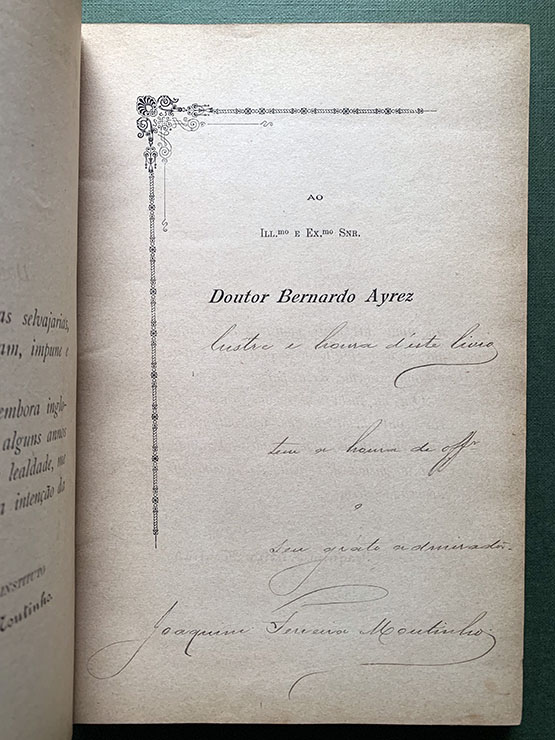 as selvajarias,
am, impune e
embora inglo-
alguns annos
lealdade, me
a intenção da
INSTITUTO
Moutinho.
AO
ILL.mo E EX.mo SNR.
Doutor Bernardo Ayrez
lustre e honra d'este livro
tem a honra de offr
o
seu gráto admiradôr
Joaquim Ferreira Moutinho